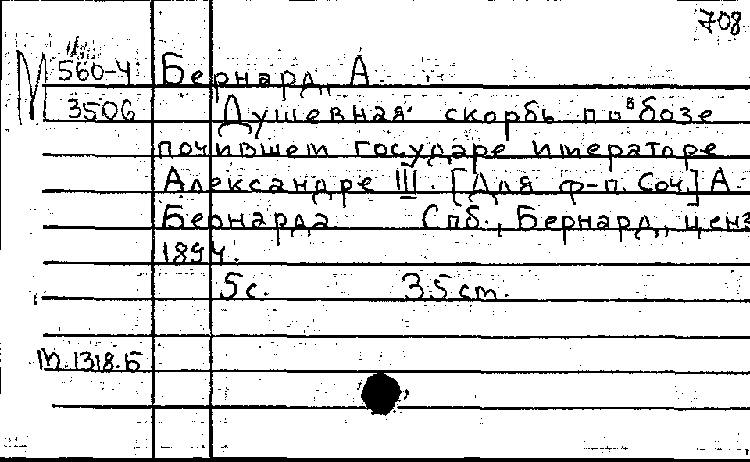 708
М 560-4 Бернард, А.
3506 Душевная скорбь по в бозе
почившем государе императоре
Александре III. [Для ф-п. Соч.] А.
Бернарда Спб., Бернард, ценз
1894.
5 с. 35 cm.
М.1318.Б